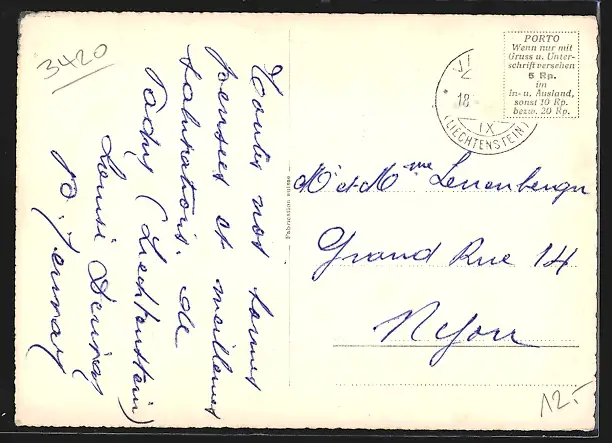 3420
Toutes nos bonnes
pensées et meilleures
salutations. de
Vaduz (Liechtenstein)
Fabrication suisse
PORTO
Wenn nur mit
Gruss u. Unter-
schrift versehen
5 Rp.
im
In- u. Ausland,
sonst 10 Rp.
bezw. 20 Rp.
18
IX
(LIECHTENSTEIN)
M. et Mme Leuenberger
Grand Rue 14
Nyon
12.-